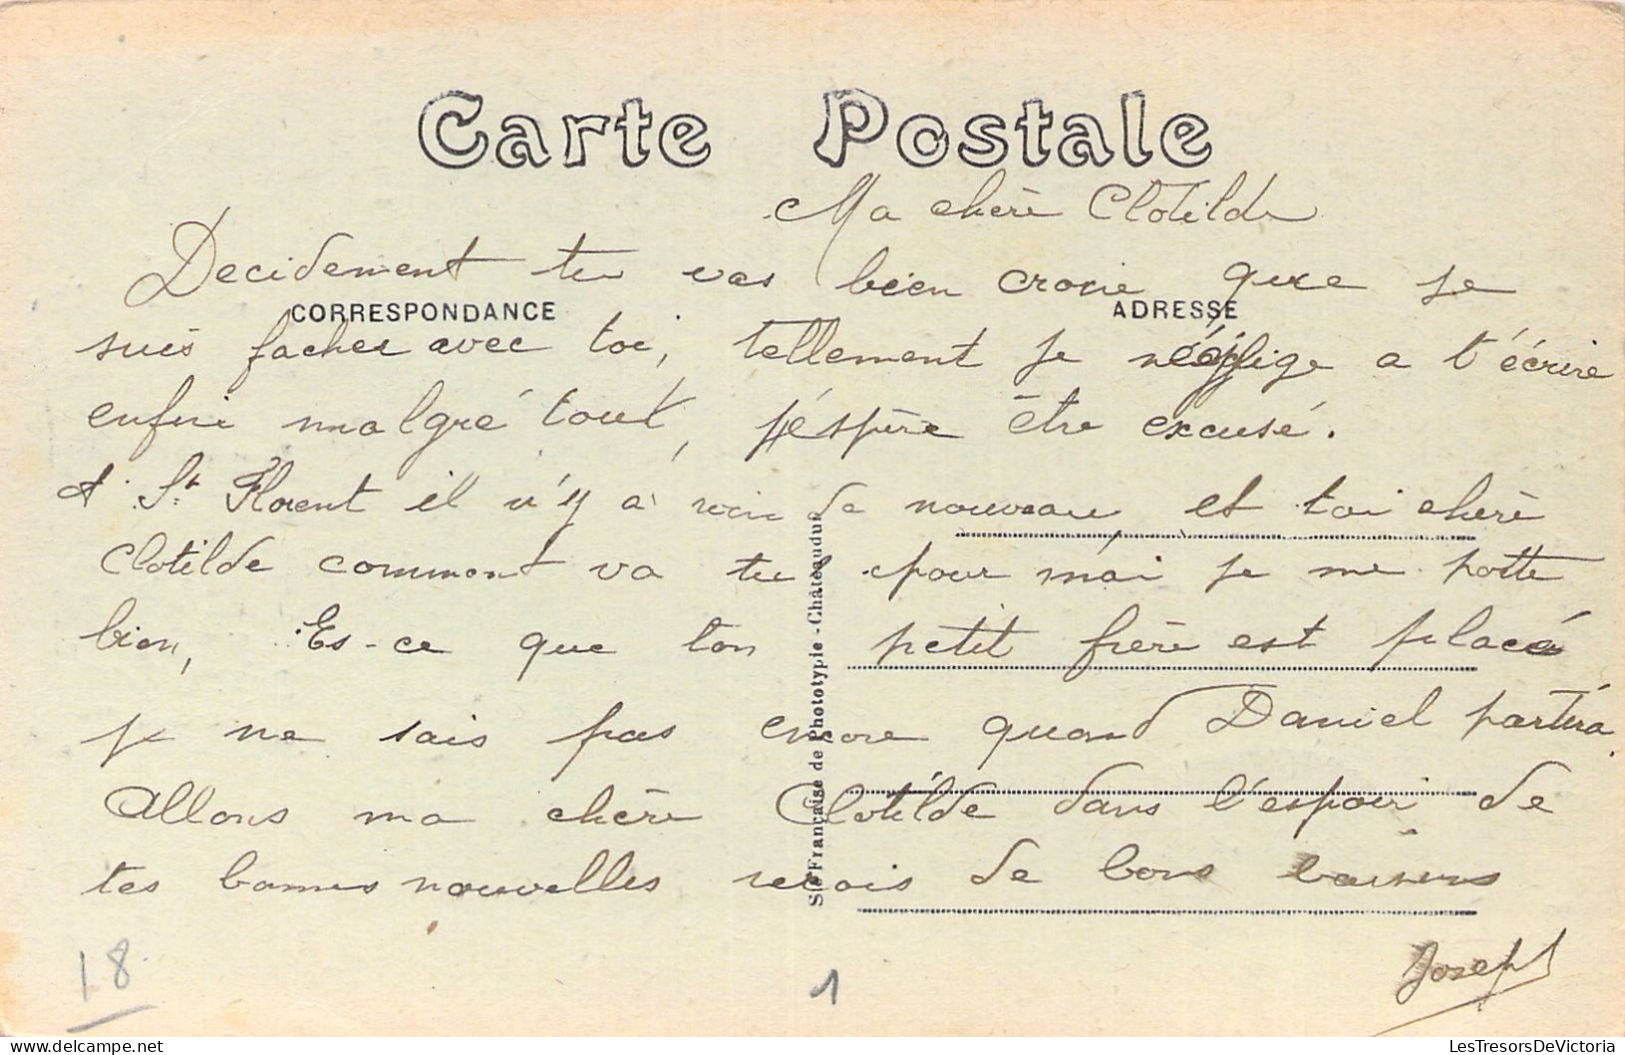 Carte Postale
Ma chère Clotilde
Decidement tu vas bien croire que je
CORRESPONDANCE
ADRESSE
suis facher avec toi, tellement je néglige a t'écrire
enfin malgré tout, j'éspère être excusé.
A St Florent il n'y a rien de nouveau, et toi chère
Clotilde comment va tu pour moi je me porte
bien, Es-ce que ton petit frère est placé
je ne sais pas encore quand Daniel partira.
Allons ma chère Clotilde dans l'espoir de
tes bonnes nouvelles recois de bons baisers
Joseph
Sté Française de Phototypie - Châteaudun
18
1
LesTresorsDeVictoria